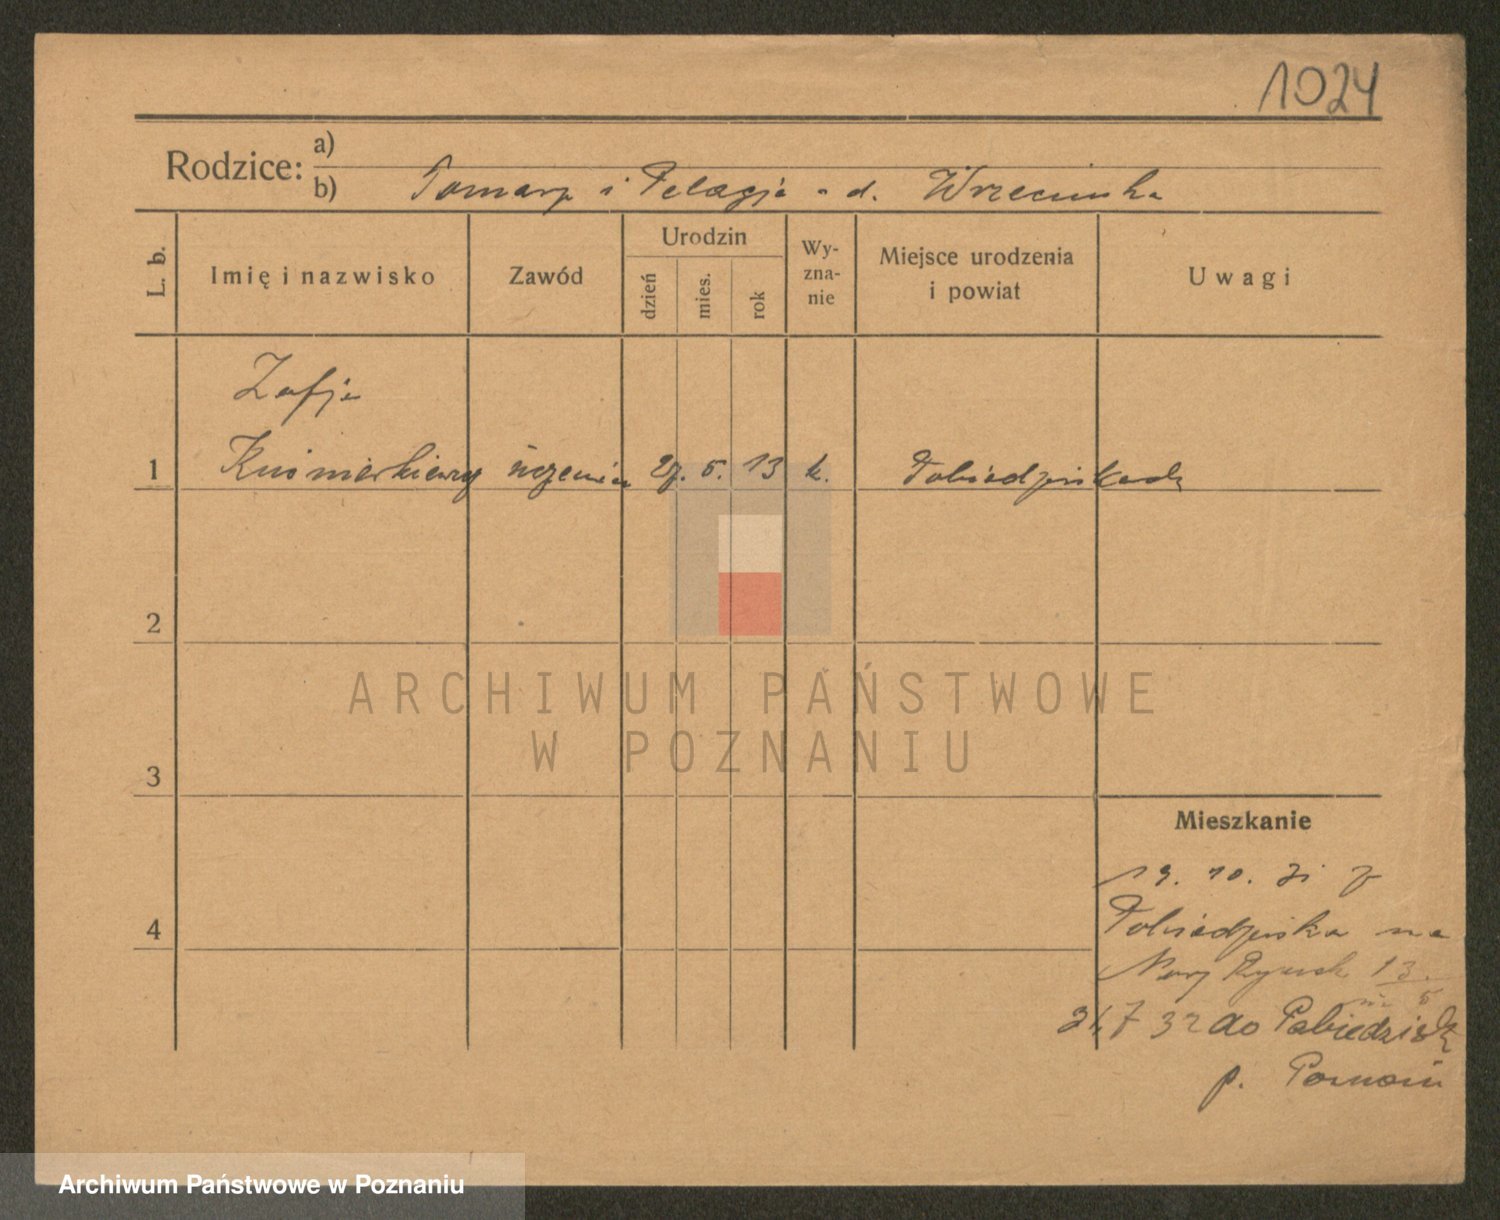 1024
Rodzice: a)
b) Tomasz i Pelagja - d. Wrzecińska
L. b.
Imię i nazwisko
Zawód
Urodzin
dzień
mies.
rok
Wy-
zna-
nie
Miejsce urodzenia
i powiat
Uwagi
Zofja
1 Kuśnierkiewicz uczenica 27. 5. 13 k. Pobiedziskach
2
3
4
Mieszkanie
19. 10. 31 z
Pobiedziska na
Rynek 13
21. 7 32 do Pobiedzisk
p. Poznań
ARCHIWUM PAŃSTWOWE
W POZNANIU
Archiwum Państwowe w Poznaniu